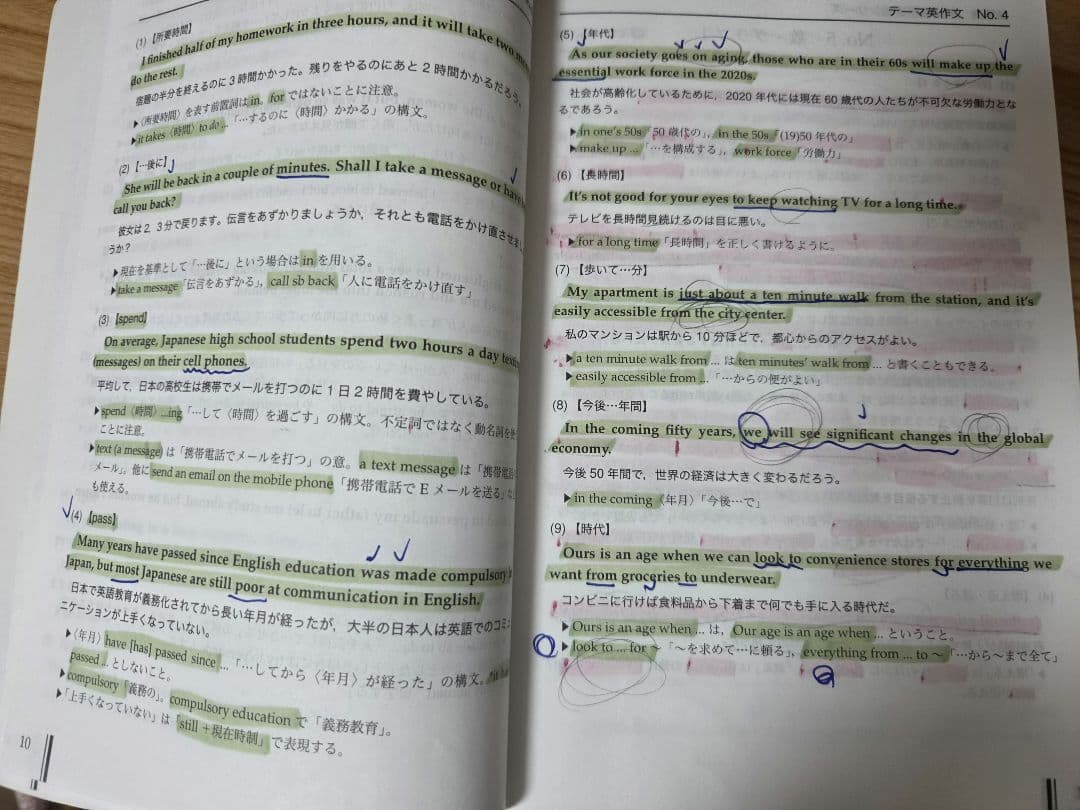 (1)【所要時間】
I finished half of my homework in three hours, and it will take two
do the rest.
宿題の半分を終えるのに3時間かかった。残りをやるのにあと2時間かかるだろう。
▶〈所要時間〉を表す前置詞は in. for ではないことに注意。
▶it takes〈時間〉to do ...「…するのに〈時間〉かかる」の構文。
(2)【…後に】
She will be back in a couple of minutes. Shall I take a message or have
call you back?
彼女は2, 3分で戻ります。伝言をあずかりましょうか，それとも電話をかけ直させまし
ょうか？
▶現在を基準として「…後に」という場合は in を用いる。
▶take a message「伝言をあずかる」, call sb back「人に電話をかけ直す」
(3)【spend】
On average, Japanese high school students spend two hours a day
(messages) on their cell phones.
平均して，日本の高校生は携帯でメールを打つのに1日2時間を費やしている。
▶spend〈時間〉...ing「…して〈時間〉を過ごす」の構文。不定詞ではなく動名詞を
ことに注意。
▶text (a message) は「携帯電話でメールを打つ」の意。a text message は「携帯電話
メール」。他に send an email on the mobile phone「携帯電話でEメールを送る」
も使える。
(4)【pass】
Many years have passed since English education was made compulsory
Japan, but most Japanese are still poor at communication in English.
日本で英語教育が義務化されてから長い年月が経ったが，大半の日本人は英語でのコミュ
ニケーションが上手くなっていない。
▶〈年月〉have [has] passed since ...「…してから〈年月〉が経った」の構文。
passed ... としないこと。
▶compulsory「義務の」。compulsory education で「義務教育」。
▶「上手くなっていない」は「still＋現在時制」で表現する。
10
テーマ英作文 No. 4
(5)【年代】
As our society goes on aging, those who are in their 60s will make up the
essential work force in the 2020s.
社会が高齢化しているために，2020年代には現在60歳代の人たちが不可欠な労働力とな
るであろう。
▶in one's 50s「50歳代の」, in the 50s「(19)50年代の」
▶make up ...「…を構成する」, work force「労働力」
(6)【長時間】
It's not good for your eyes to keep watching TV for a long time.
テレビを長時間見続けるのは目に悪い。
▶for a long time「長時間」を正しく書けるように。
(7)【歩いて…分】
My apartment is just about a ten minute walk from the station, and it's
easily accessible from the city center.
私のマンションは駅から10分ほどで，都心からのアクセスがよい。
▶a ten minute walk from ... は ten minutes' walk from ... と書くこともできる。
▶easily accessible from ...「…からの便がよい」
(8)【今後…年間】
In the coming fifty years, we will see significant changes in the global
economy.
今後50年間で，世界の経済は大きく変わるだろう。
▶in the coming〈年月〉「今後…で」
(9)【時代】
Ours is an age when we can look to convenience stores for everything we
want from groceries to underwear.
コンビニに行けば食料品から下着まで何でも手に入る時代だ。
▶Ours is an age when ... は，Our age is an age when ... ということ。
▶look to ... for ～「～を求めて…に頼る」, everything from ... to ～「…から～まで全て」